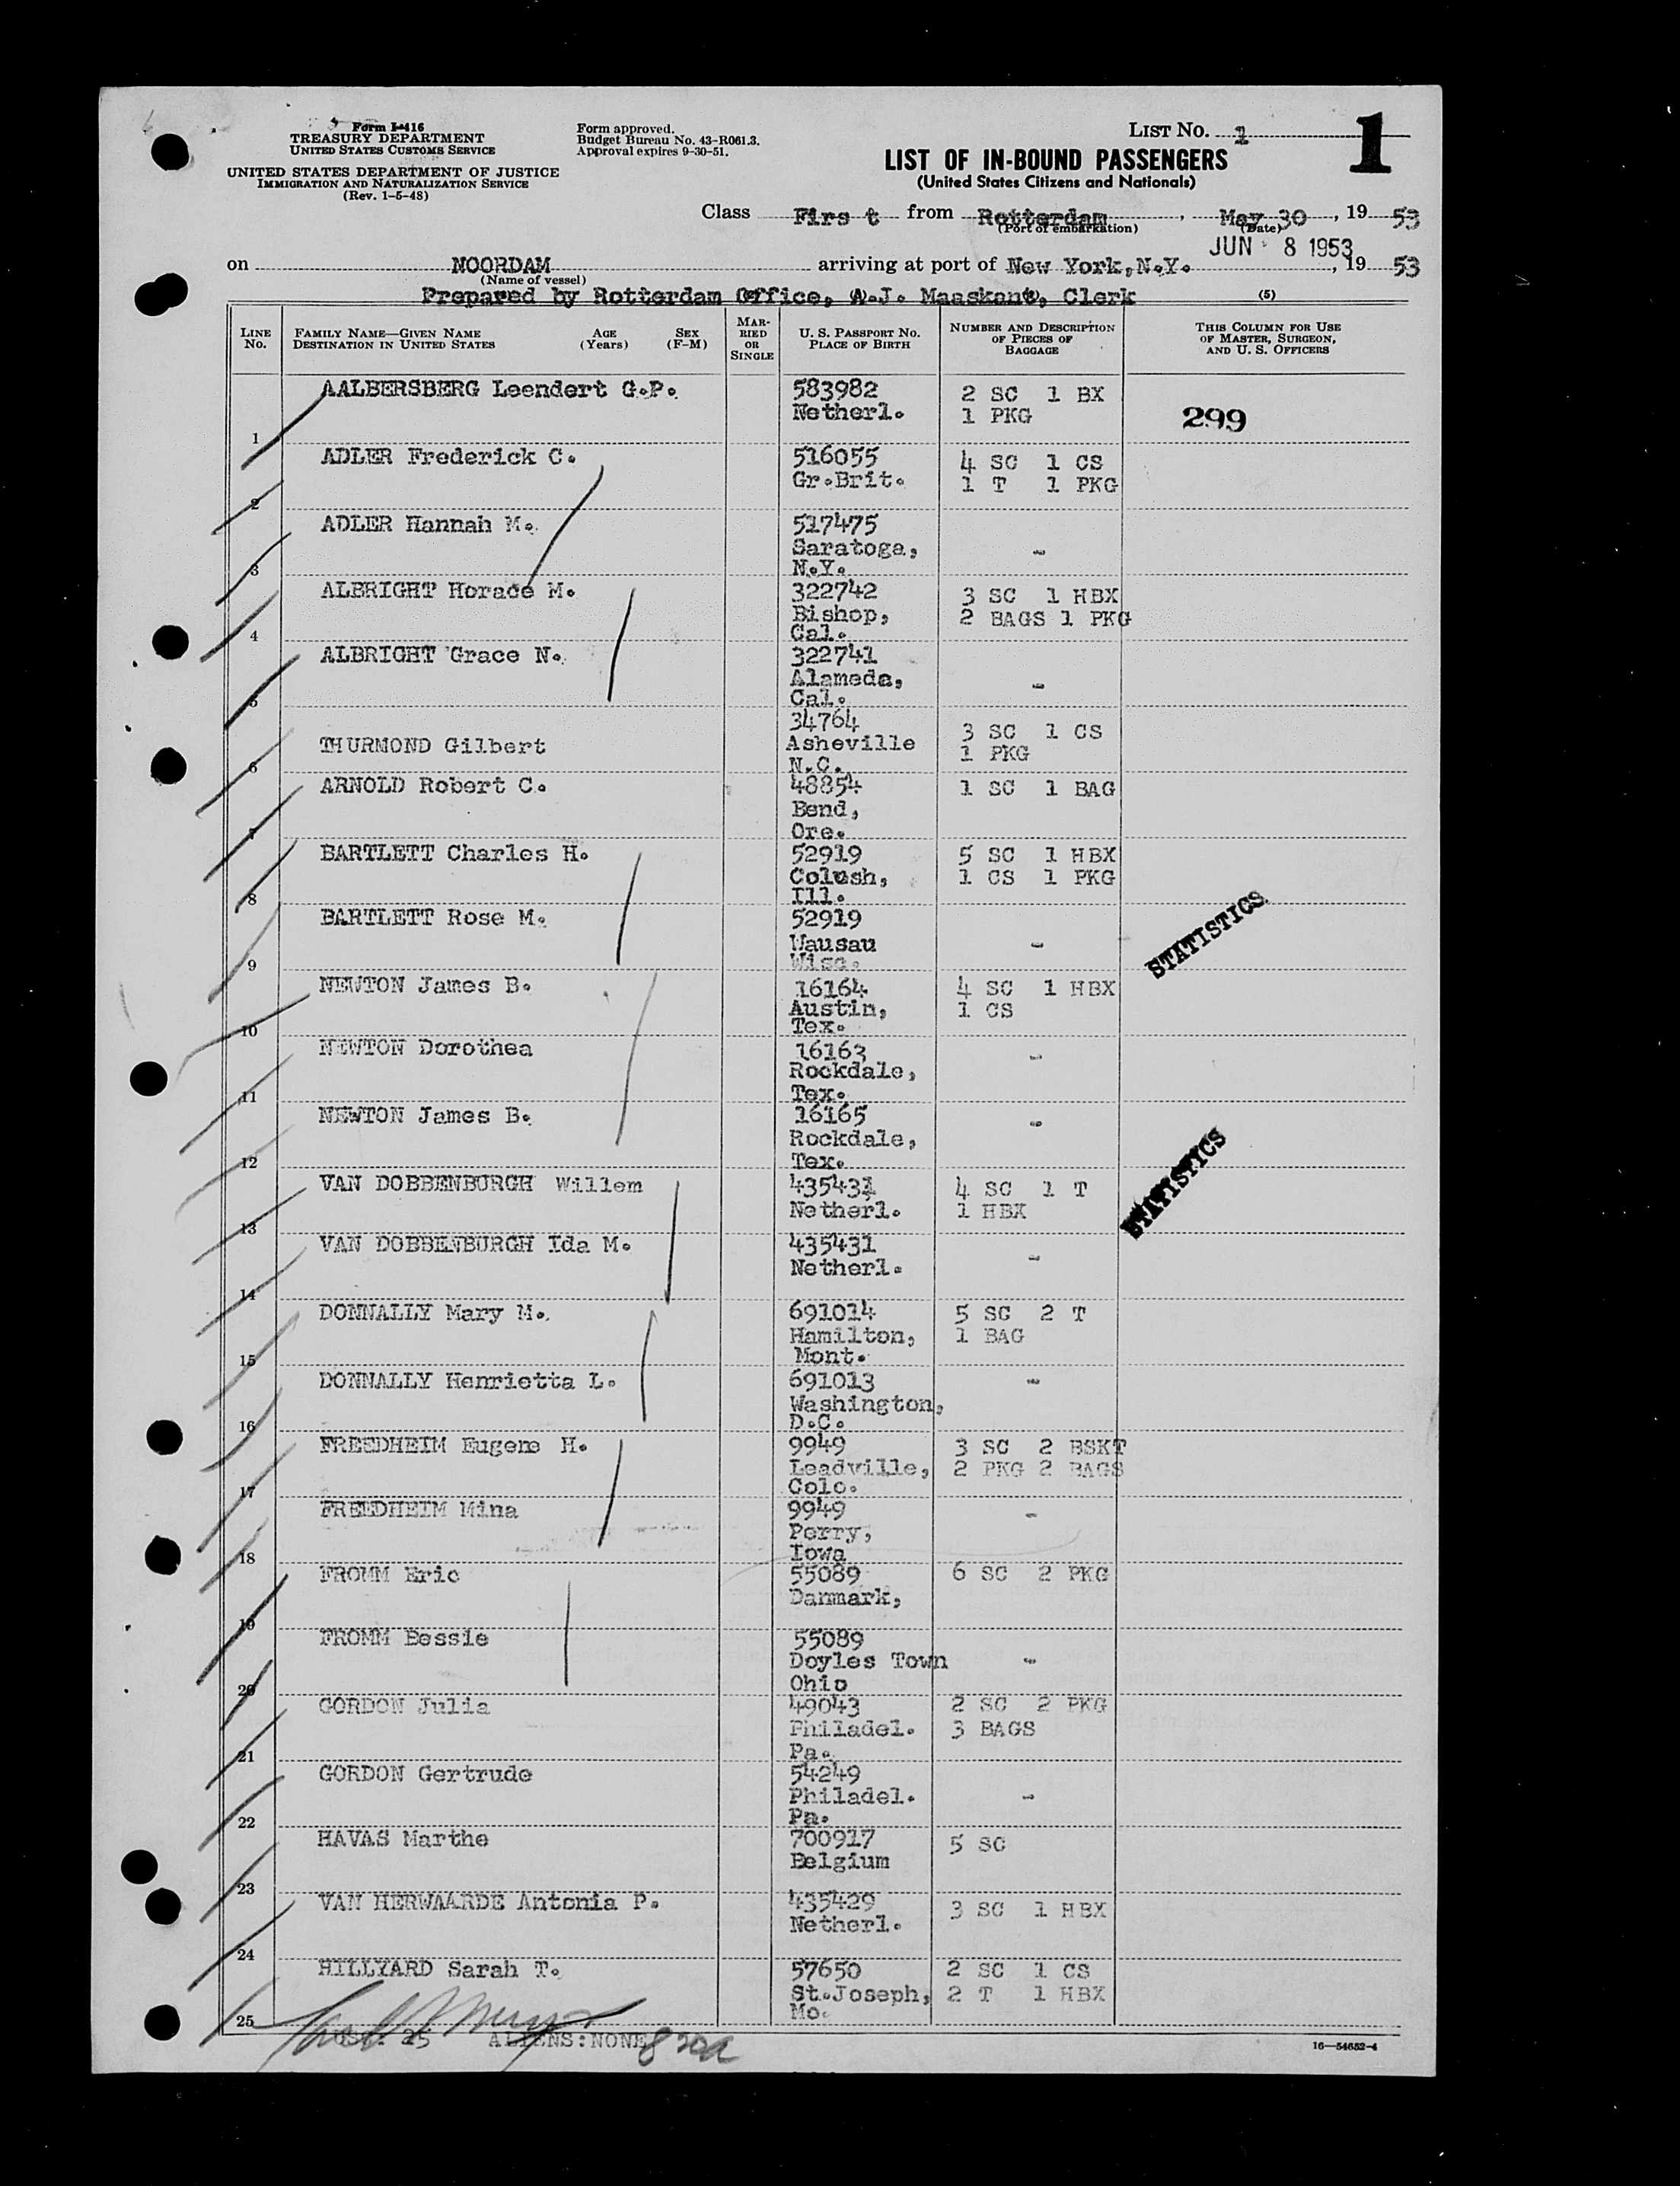 Form I-416
TREASURY DEPARTMENT
UNITED STATES CUSTOMS SERVICE
UNITED STATES DEPARTMENT OF JUSTICE
IMMIGRATION AND NATURALIZATION SERVICE
(Rev. 1-5-48)
Form approved.
Budget Bureau No. 43-R061.3.
Approval expires 9-30-51.
LIST NO. 1
1
LIST OF IN-BOUND PASSENGERS
(United States Citizens and Nationals)
Class First from Rotterdam, May 30, 19 53
(Port of embarkation) (Date)
JUN 8 1953
on NOORDAM arriving at port of New York, N.Y., 19 53
(Name of vessel)
Prepared by Rotterdam Office, A.J. Maaskant, Clerk (5)
LINE NO. FAMILY NAME—GIVEN NAME DESTINATION IN UNITED STATES AGE (Years) SEX (F-M) MARRIED OR SINGLE U. S. PASSPORT NO. PLACE OF BIRTH NUMBER AND DESCRIPTION OF PIECES OF BAGGAGE THIS COLUMN FOR USE OF MASTER, SURGEON, AND U. S. OFFICERS
1 AALBERSBERG Leendert G.P. 583982 Netherl. 2 SC 1 BX 1 PKG 299
2 ADLER Frederick C. 516055 Gr.Brit. 4 SC 1 CS 1 T 1 PKG
3 ADLER Hannah M. 517475 Saratoga, N.Y. -
4 ALBRIGHT Horace M. 322742 Bishop, Cal. 3 SC 1 HBX 2 BAGS 1 PKG
5 ALBRIGHT Grace N. 322741 Alameda, Cal. -
6 THURMOND Gilbert 34764 Asheville N.C. 3 SC 1 CS 1 PKG
7 ARNOLD Robert C. 48854 Bend, Ore. 1 SC 1 BAG
8 BARTLETT Charles H. 52919 Colush, Ill. 5 SC 1 HBX 1 CS 1 PKG
9 BARTLETT Rose M. 52919 Wausau Wisc. -
STATISTICS
10 NEWTON James B. 16164 Austin, Tex. 4 SC 1 HBX 1 CS
11 NEWTON Dorothea 16163 Rockdale, Tex. -
12 NEWTON James B. 16165 Rockdale, Tex. -
STATISTICS
13 VAN DOBBENBURGH Willem 435431 Netherl. 4 SC 1 T 1 HBX
14 VAN DOBBENBURGH Ida M. 435431 Netherl. -
15 DONNALLY Mary M. 691014 Hamilton, Mont. 5 SC 2 T 1 BAG
16 DONNALLY Henrietta L. 691013 Washington, D.C. -
17 FREEDHEIM Eugene H. 9949 Leadville, Colo. 3 SC 2 BSKT 2 PKG 2 BAGS
18 FREEDHEIM Mina 9949 Perry, Iowa -
19 FROMM Eric 55089 Danmark, 6 SC 2 PKG
20 FROMM Bessie 55089 Doyles Town Ohio -
21 GORDON Julia 49043 Philadel. Pa. 2 SC 2 PKG 3 BAGS
22 GORDON Gertrude 54249 Philadel. Pa. -
23 HAVAS Marthe 700917 Belgium 5 SC
24 VAN HERWAARDE Antonia P. 435429 Netherl. 3 SC 1 HBX
25 HILLYARD Sarah T. 57650 St.Joseph, Mo. 2 SC 1 CS 2 T 1 HBX
25 ALIENS:NONE
16—54652-4